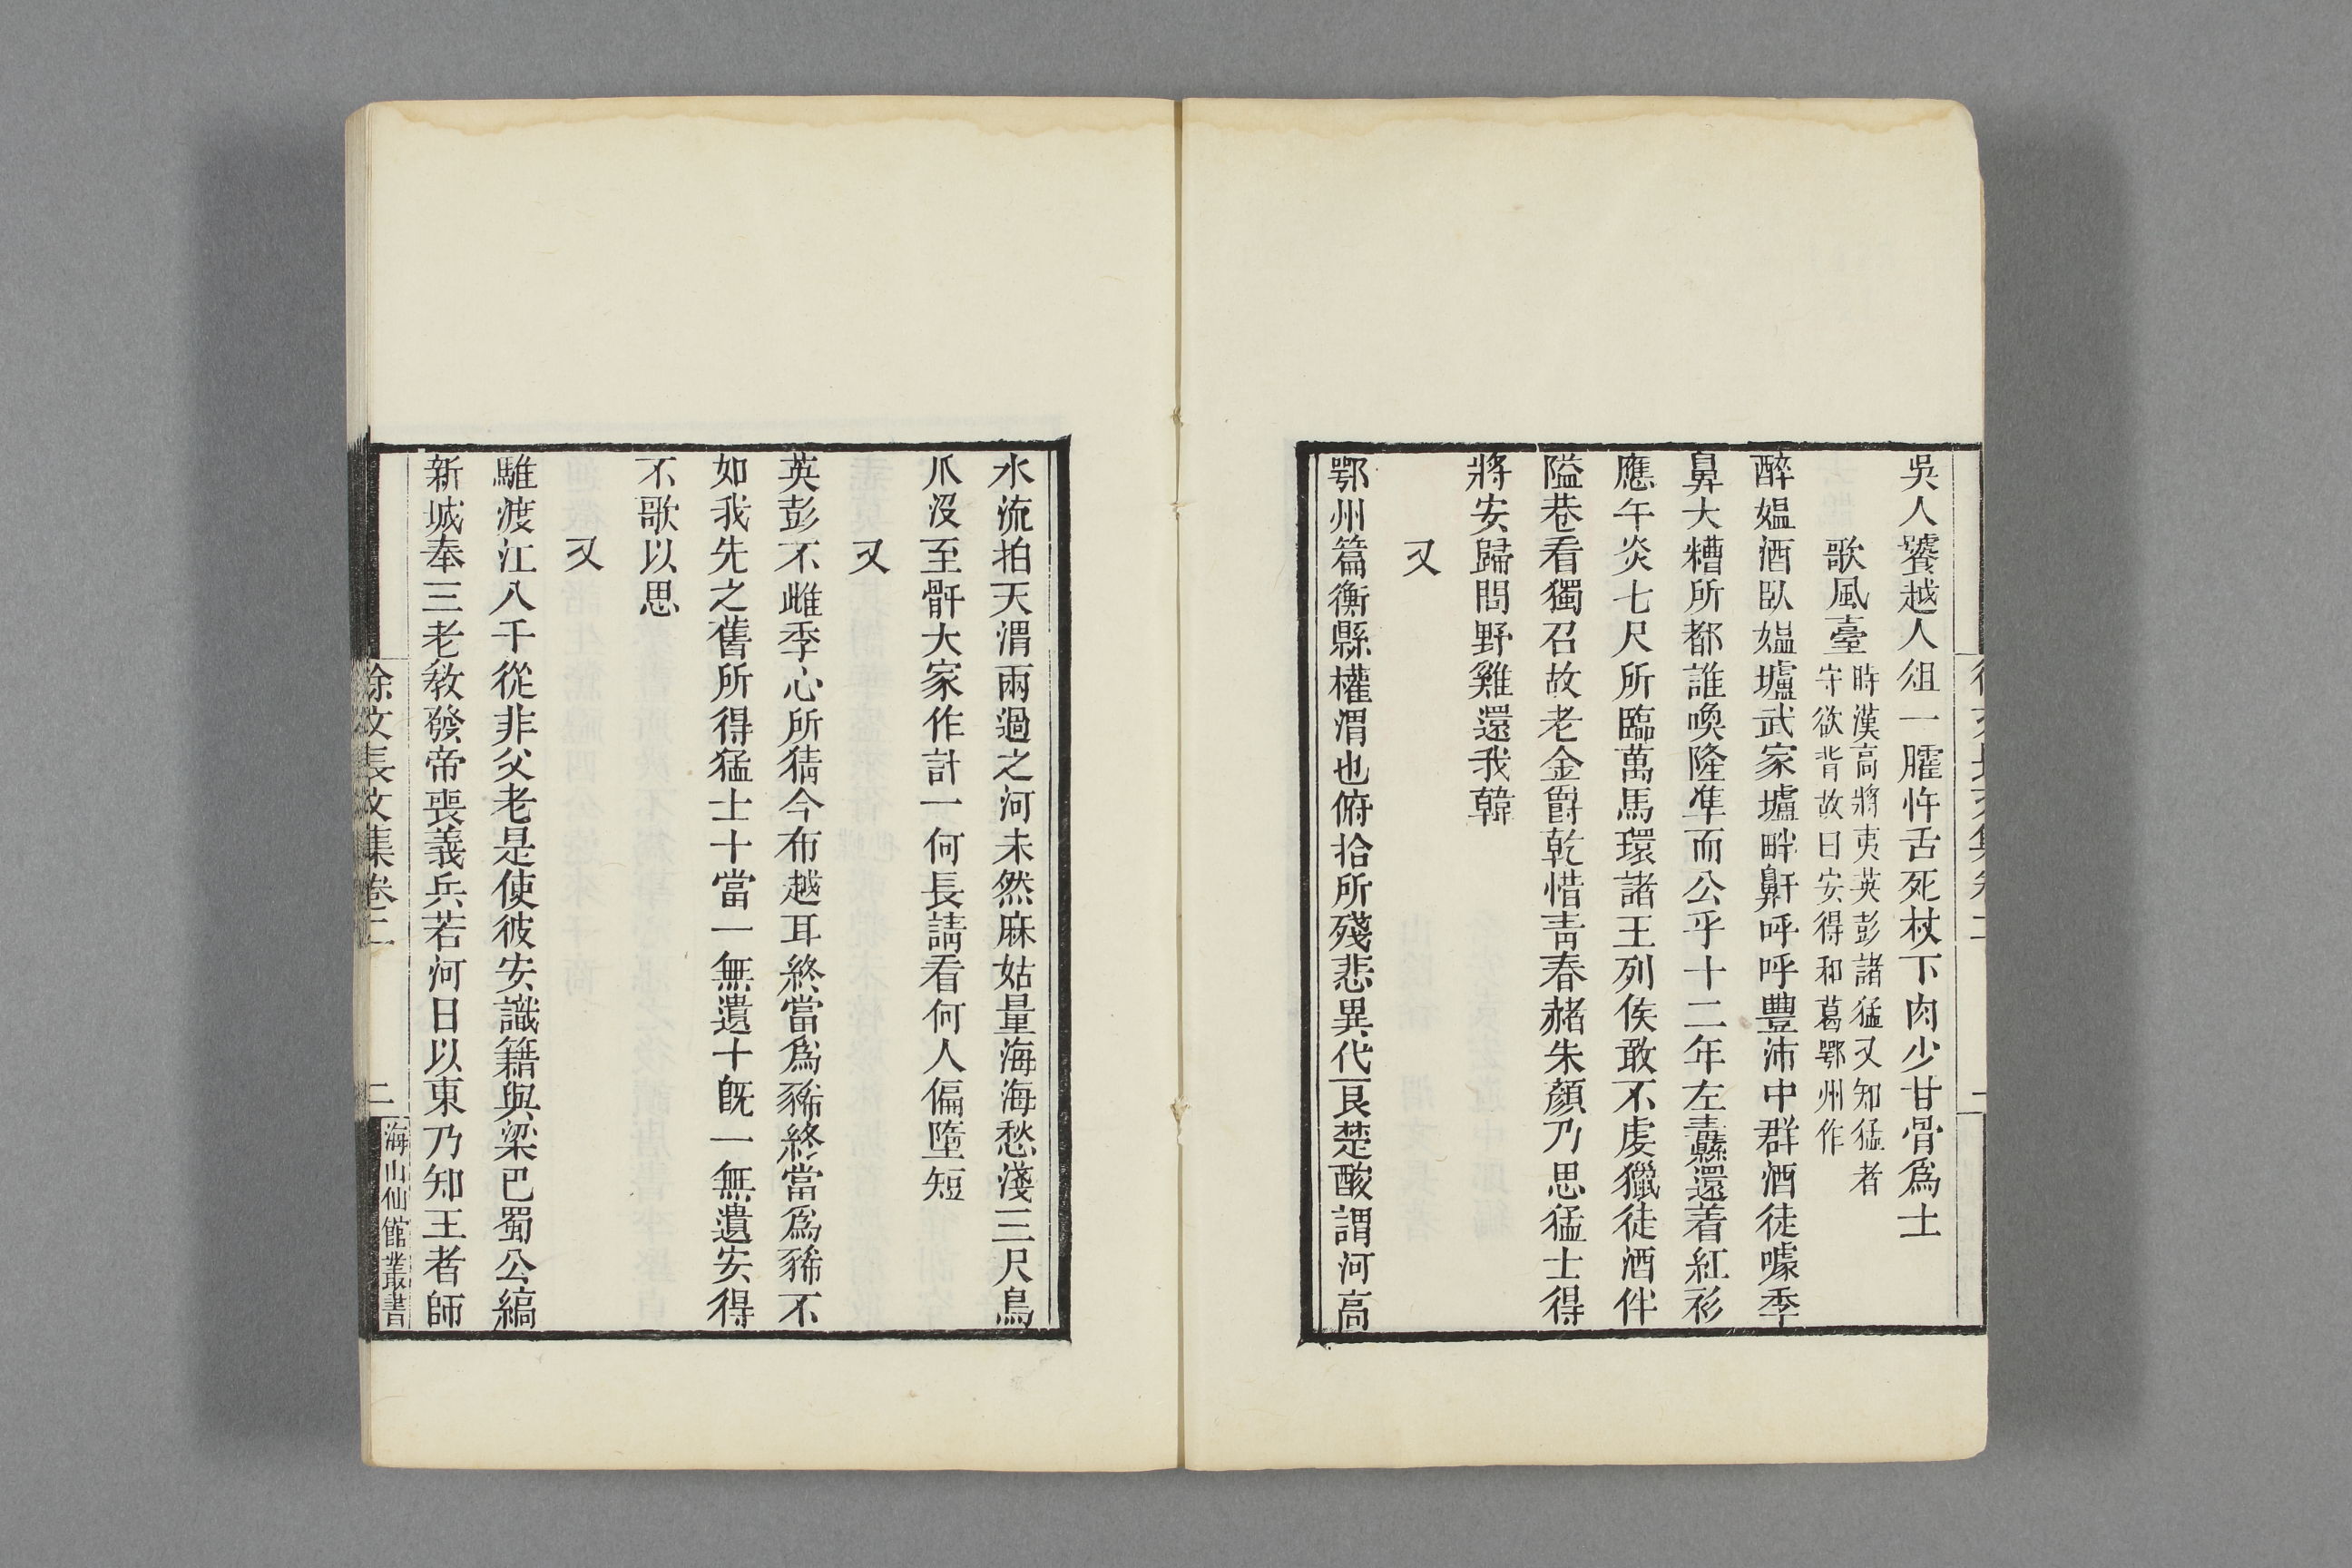 吳人饕越人俎一臛忤舌死杖下肉少甘骨爲士
歌風臺
時漢高將夷英彭諸猛又知猛者
守欲背故曰安得和葛鄂州作
醉媼酒臥媼壚武家壚畔鼾呼呼豐沛中群酒徒噱季
鼻大糟所都誰喚隆準而公乎十二年左青縣還着紅衫
應午炎七尺所臨萬馬環諸王列侯敢不虔獵徒酒伴
隘巷看獨召故老金爵乾惜青春赭朱顏乃思猛士得
將安歸問野雞還我韓
又
鄂州篇衡縣權渭也俯拾所殘悲異代艮楚酸謂河高
水流拍天渭兩過之河未然麻姑量海海愁淺三尺鳥
爪沒至骭大家作計一何長請看何人偏墮短
又
英彭不雌季心所猜今布越耳終當爲豨終當爲豨不
如我先之舊所得猛士十當一無遺十旣一無遺安得
不歌以思
又
騅渡江八千從非父老是使彼安識籍與梁巴蜀公縞
新城奉三老教發帝喪義兵若河日以東乃知王者師
徐文長文集卷二
二
海山仙館叢書